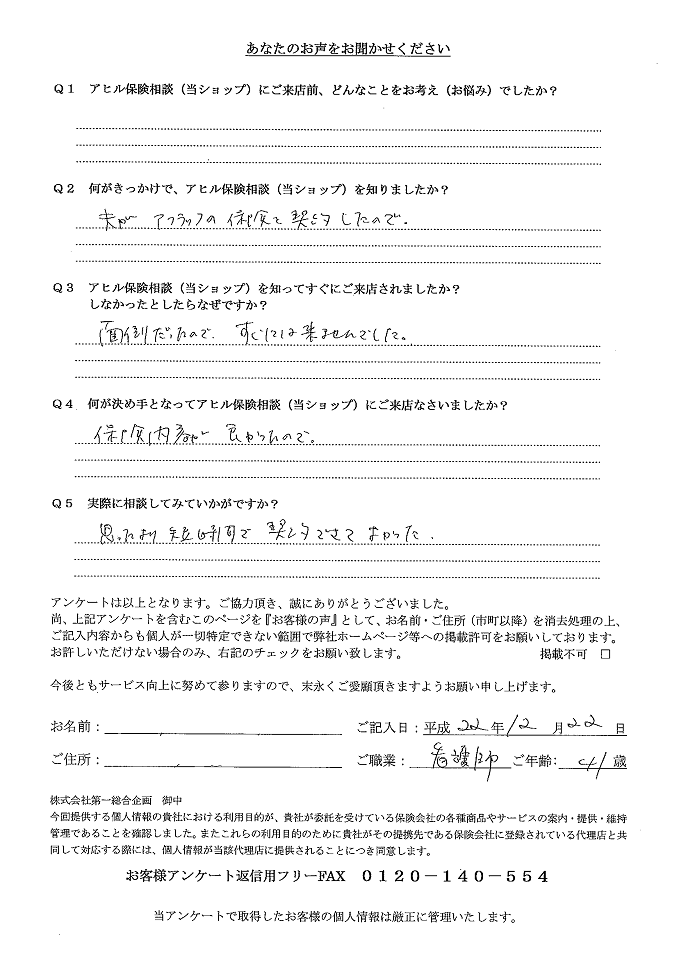 あなたのお声をお聞かせください
Q1 アヒル保険相談（当ショップ）にご来店前、どんなことをお考え（お悩み）でしたか？
Q2 何がきっかけで、アヒル保険相談（当ショップ）を知りましたか？
夫が アフラックの保険を契約したので。
Q3 アヒル保険相談（当ショップ）を知ってすぐにご来店されましたか？
しなかったとしたらなぜですか？
面倒だったので、すぐには来ませんでした。
Q4 何が決め手となってアヒル保険相談（当ショップ）にご来店なさいましたか？
保険内容が良かったので。
Q5 実際に相談してみていかがですか？
思ったより短時間で契約できてよかった。
アンケートは以上となります。ご協力頂き、誠にありがとうございました。
尚、上記アンケートを含むこのページを『お客様の声』として、お名前・ご住所（市町以降）を消去処理の上、
ご記入内容からも個人が一切特定できない範囲で弊社ホームページ等への掲載許可をお願いしております。
お許しいただけない場合のみ、右記のチェックをお願い致します。 掲載不可 □
今後ともサービス向上に努めて参りますので、末永くご愛顧頂きますようお願い申し上げます。
お名前： ご記入日：平成 22 年 12 月 22 日
ご住所： ご職業：看護師 ご年齢：41 歳
株式会社第一総合企画 御中
今回提供する個人情報の貴社における利用目的が、貴社が委託を受けている保険会社の各種商品やサービスの案内・提供・維持
管理であることを確認しました。またこれらの利用目的のために貴社がその提携先である保険会社に登録されている代理店と共
同して対応する際には、個人情報が当該代理店に提供されることにつき同意します。
お客様アンケート返信用フリーFAX 0120－140－554
当アンケートで取得したお客様の個人情報は厳正に管理いたします。